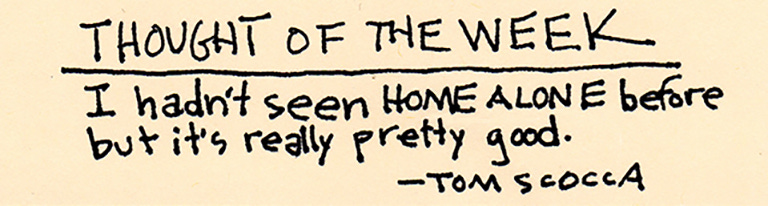 THOUGHT OF THE WEEK
I hadn't seen HOME ALONE before
but it's really pretty good.
—TOM SCOCCA